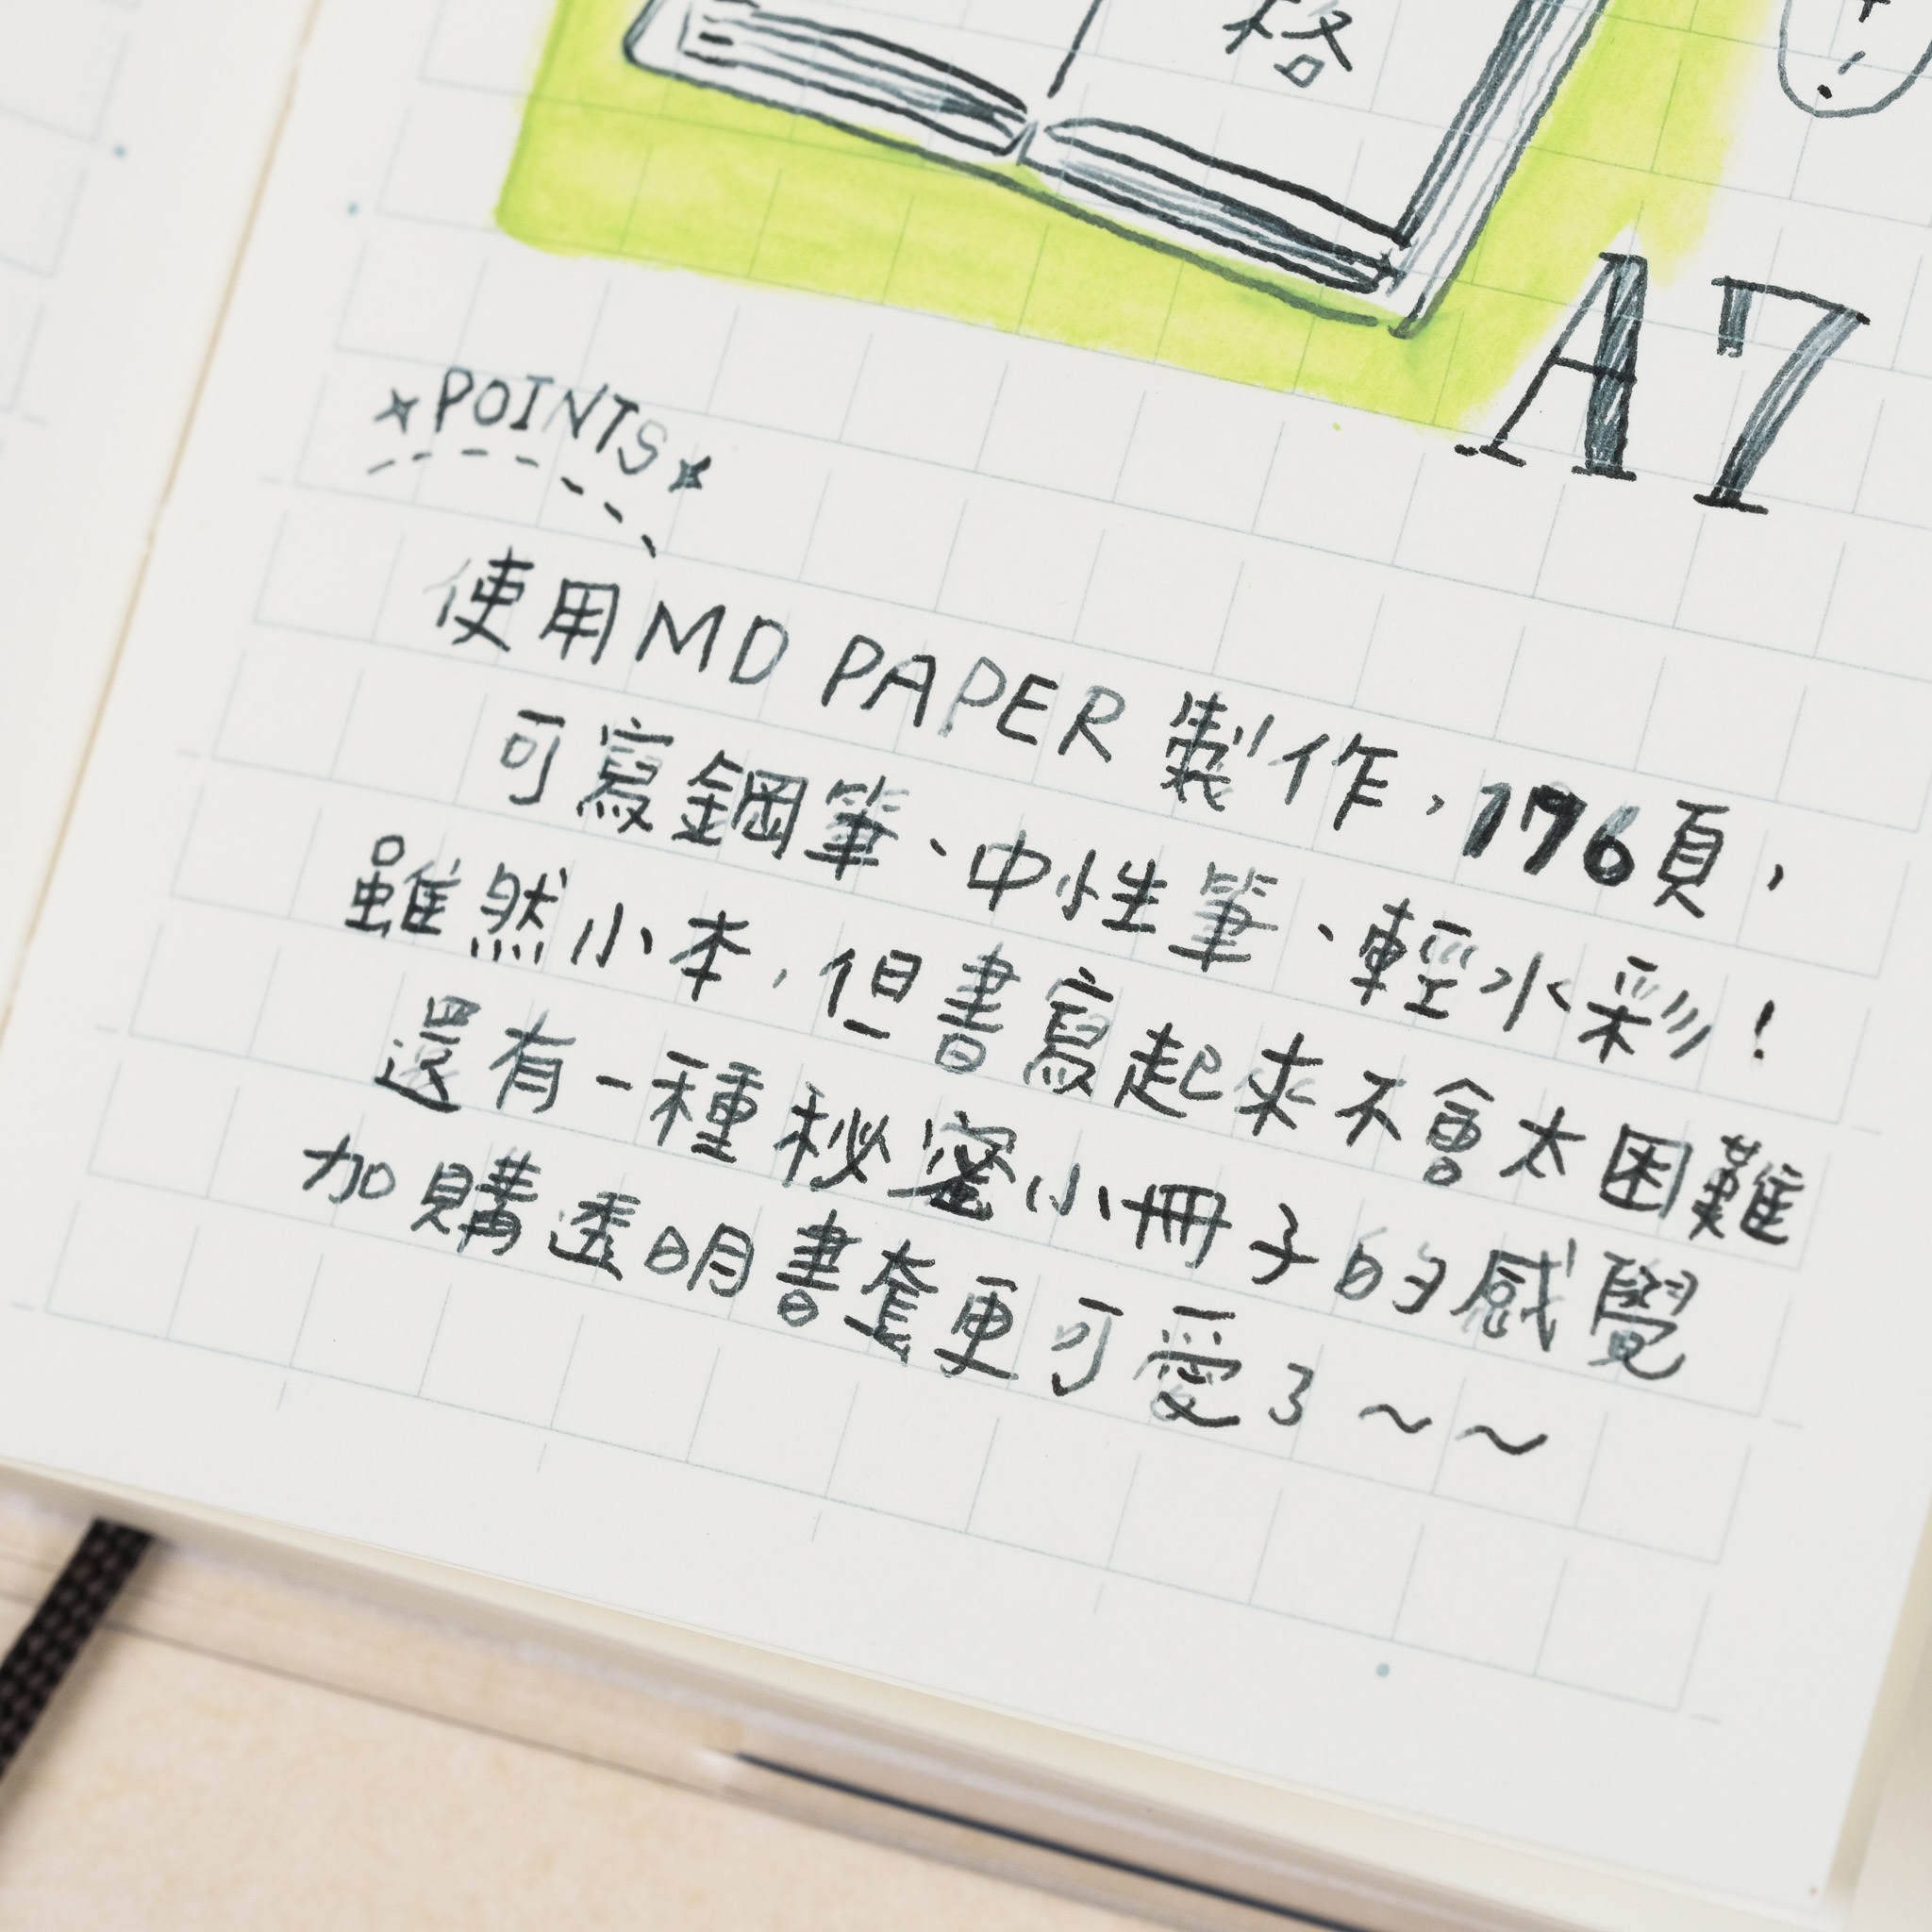 格
A7
POINTS
使用MD PAPER 製作,176頁,
可寫鋼筆、中性筆、輕水彩!
雖然小本,但書寫起來不會太困難
還有一種秘密小冊子的感覺
加購透明書套更可愛了~~